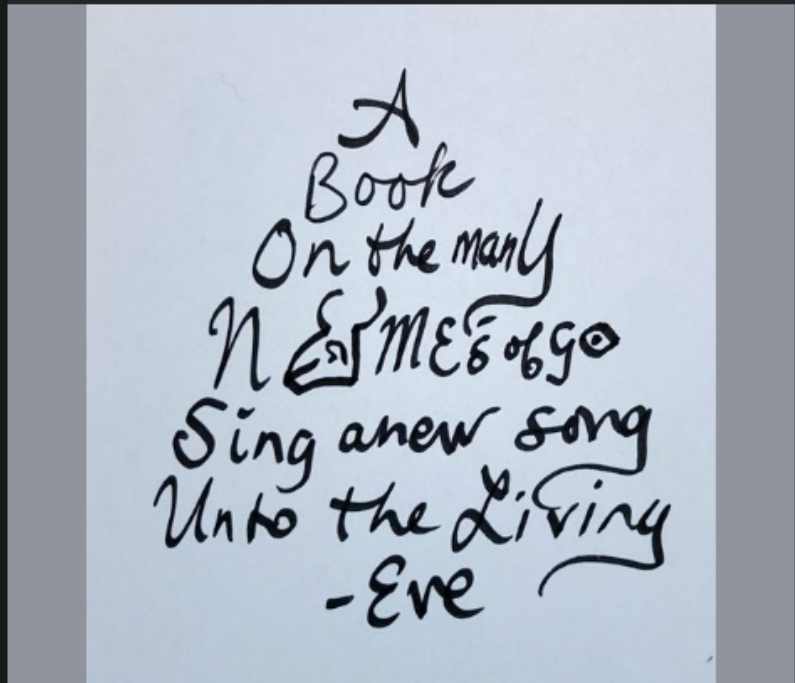 A
Book
On the manY
of
Sing anew song
Unto the Living
-Eve